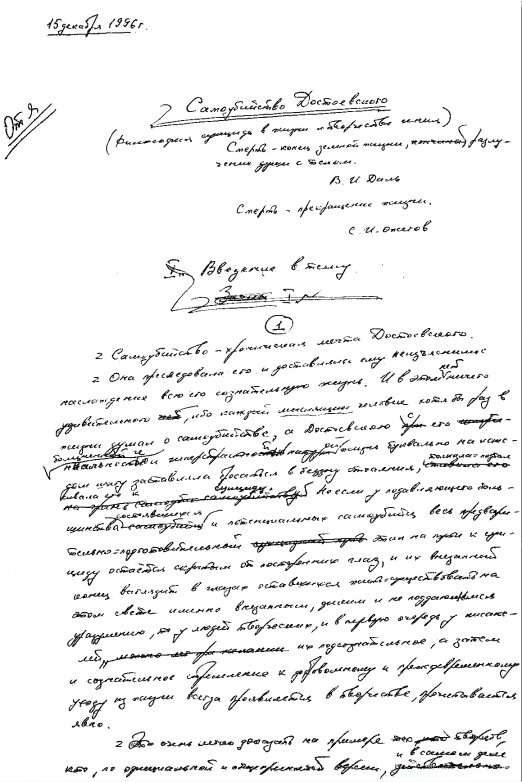 15 декабря 1996 г.
От Я
Самоубийство Достоевского
(Философия суицида в жизни и творчестве гения)
Смерть – конец земной жизни, кончина, разлу-
чение души с телом.
В. И. Даль
Смерть – прекращение жизни.
С. И. Ожегов
I. Введение в тему
I
1
Самоубийство – хроническая мечта Достоевского.
Она преследовала его и доставляла ему неизъяснимое
наслаждение всю его сознательную жизнь. И в этом нет ничего
удивительного, ибо каждый мыслящий человек хотя бы раз в
жизни думал о самоубийстве, а Достоевского с его
болезненной и гипертрофированной буквально на каж-
дом шагу заставляла бросаться в бездну отчаяния, толкала-подтал-
кивала его к суициду. Но если у подавляющего боль-
шинства состоявшихся и потенциальных самоубийц весь предвари-
тельно-подготовительный этап на пути к суи-
циду остаётся скрытым от посторонних глаз, и их внезапный
конец выглядит в глазах оставшихся жить-существовать на
этом свете именно внезапным, диким и не поддающимся
уразумению, то у людей творческих, и в первую очередь у писате-
лей, их подсознательное, а затем
и сознательное стремление к добровольному и преждевременному
уходу из жизни всегда проявляется в творчестве, прочитывается
явно.
Это очень легко доказать на примере творцов,
кто, по официальной и общепринятой версии, и в самом деле